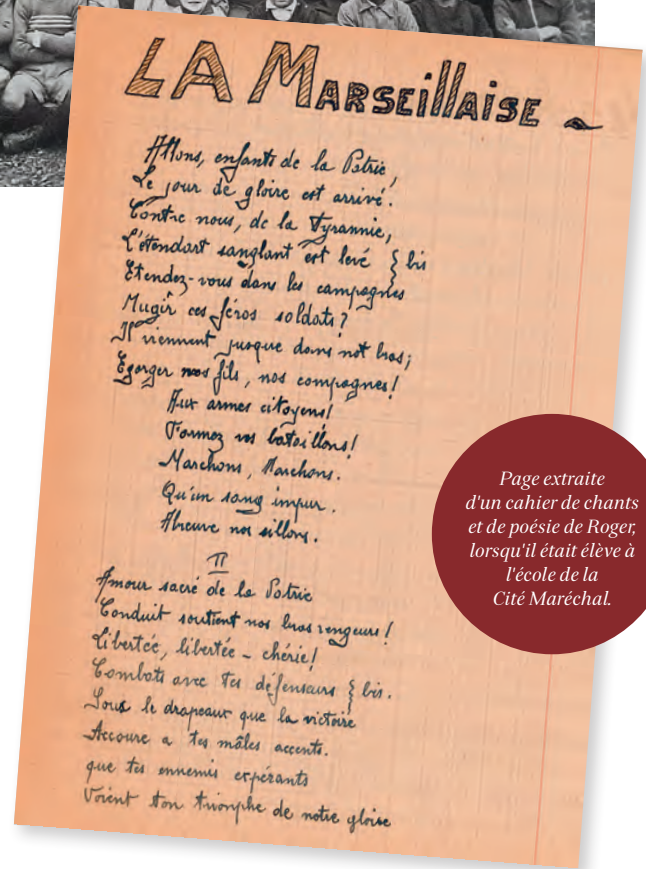 LA MARSEillAISE
Allons, enfants de la Patrie,
Le jour de gloire est arrivé.
Contre nous, de la Tyrannie,
L'étendart sanglant est levé } bis
Etendez-vous dans les campagnes
Mugir ces féros soldats?
Il viennent jusque dans not bras;
Egorger nos fils, nos compagnes!
Aux armes citoyens!
Formez vos bataillons!
Marchons, Marchons.
Qu'un sang impur.
Abreuve nos sillons.
II
Amour sacré de la Patrie
Conduit soutient nos bras vengeurs!
Libertée, libertée - chérie!
Combats avec tes défenseurs } bis.
Sous le drapeaux que la victoire
Accoure a tes mâles accents.
que tes ennemis expérants
Voient ton triomphe de notre gloire
Page extraite
d'un cahier de chants
et de poésie de Roger,
lorsqu'il était élève à
l'école de la
Cité Maréchal.